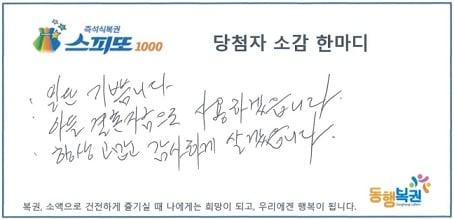 즉석식복권
스피또 1000
당첨자 소감 한마디
: 일단 기쁩니다.
: 아들 결혼자금으로 사용하겠습니다.
: 항상 고맙고 감사하게 살겠습니다.
동행복권
복권, 소액으로 건전하게 즐기실 때 나에게는 희망이 되고, 우리에겐 행복이 됩니다.